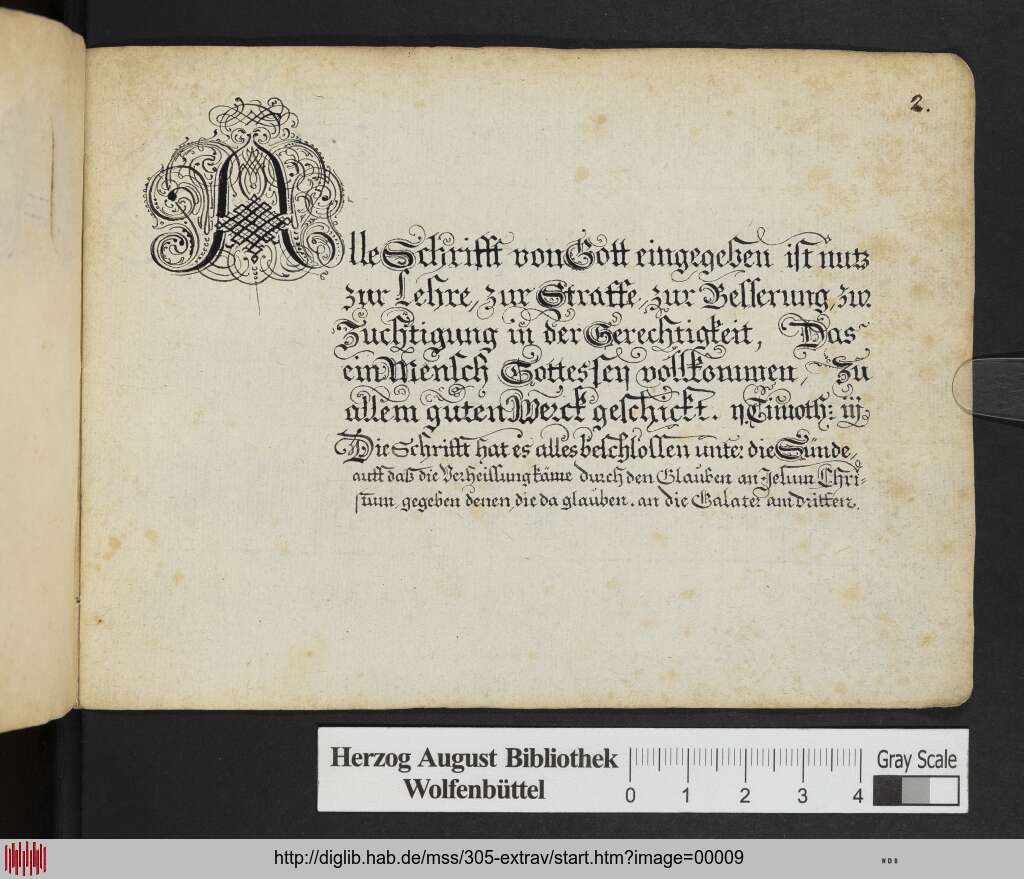 2.
Alle Schrifft von Gott eingegeben ist nutz
zur Lehre, zur Straffe, zur Besserung, zur
Zuchtigung in der Gerechtigkeit, Das
ein Mensch Gottes sey vollkommen, Zu
allem guten Werck geschickt. ij. Timoth: iij.
Die Schrifft hat es alles beschlossen unter die Sünde,
auff daß die Verheissung käme durch den Glauben an Jesum Chri-
stum, gegeben denen, die da glauben. an die Galater am dritten.
Herzog August Bibliothek
Wolfenbüttel
0 1 2 3 4
Gray Scale
http://diglib.hab.de/mss/305-extrav/start.htm?image=00009